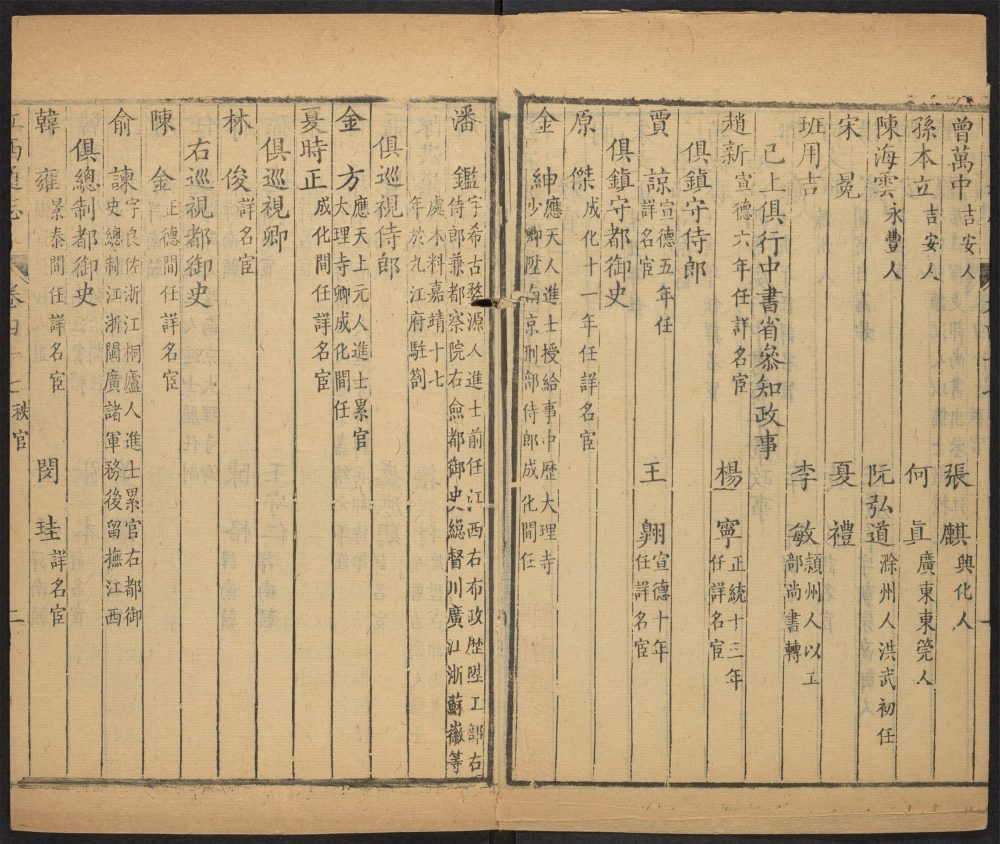 曾萬中吉安人 張麒興化人
孫本立吉安人 何眞廣東東莞人
陳海雲永豐人 阮弘道滁州人洪武初任
宋冕 夏禮
班用吉 李敏頴州人以工部尚書轉
已上俱行中書省叅知政事
趙新宣德六年任詳名宦 楊寧正統十三年任詳名宦
俱鎮守侍郎
賈諒宣德五年任詳名宦 王翺宣德十年任詳名宦
俱鎮守都御史
原傑成化十一年任詳名宦
金紳應天人進士授給事中歷大理寺少卿陞南京刑部侍郎成化間任
潘鑑字希古婺源人進士前任江西右布政歷陞工部右侍郎兼都察院右僉都御史總督川廣江浙蘇徽等
處木料嘉靖十七年於九江府駐劄
俱巡視侍郎
金方應天上元人進士累官大理寺卿成化間任
夏時正成化間任詳名宦
俱巡視卿
林俊詳名宦
右巡視都御史
陳金正德間任詳名宦
俞諫字良佐浙江桐廬人進士累官右都御史總制江浙閩廣諸軍務後留撫江西
俱總制都御史
韓雍景泰間任詳名宦 閔珪詳名宦
江西通志 卷四十七 秩官 二